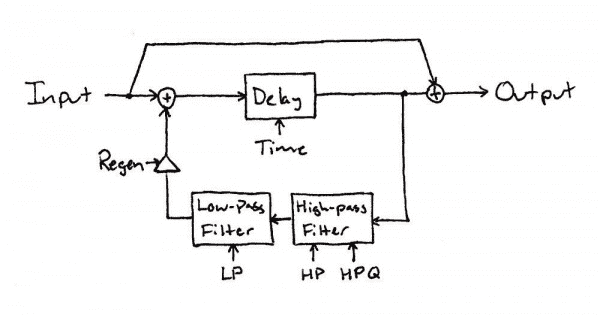 Input
+
Delay
+
Output
Time
Regen
Low-Pass
Filter
High-pass
Filter
LP
HP
HPQ